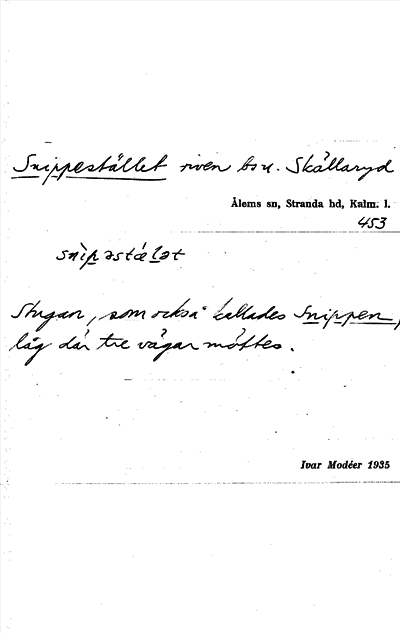 Snippestället riven bsu. Skållaryd
Ålems sn, Stranda hd, Kalm. l.
453
snìpəstælət
Stugan, som också kallades Snippen,
låg där tre vägar möttes.
Ivar Modéer 1935